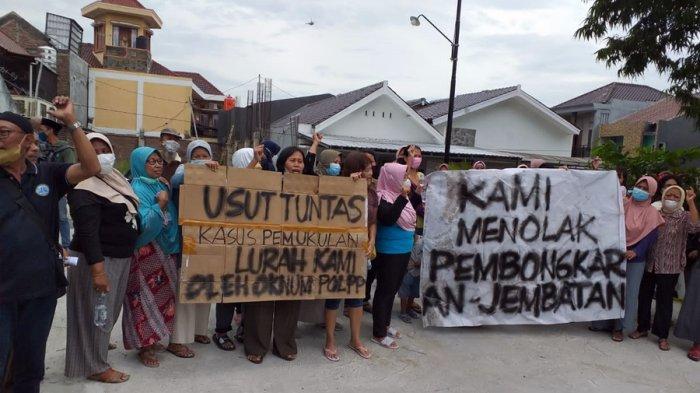 USUT TUNTAS
KASUS PEMUKULAN
LURAH KAMI
OLEH OKNUM POLPP
KAMI
MENOLAK
PEMBONGKAR
AN-JEMBATAN